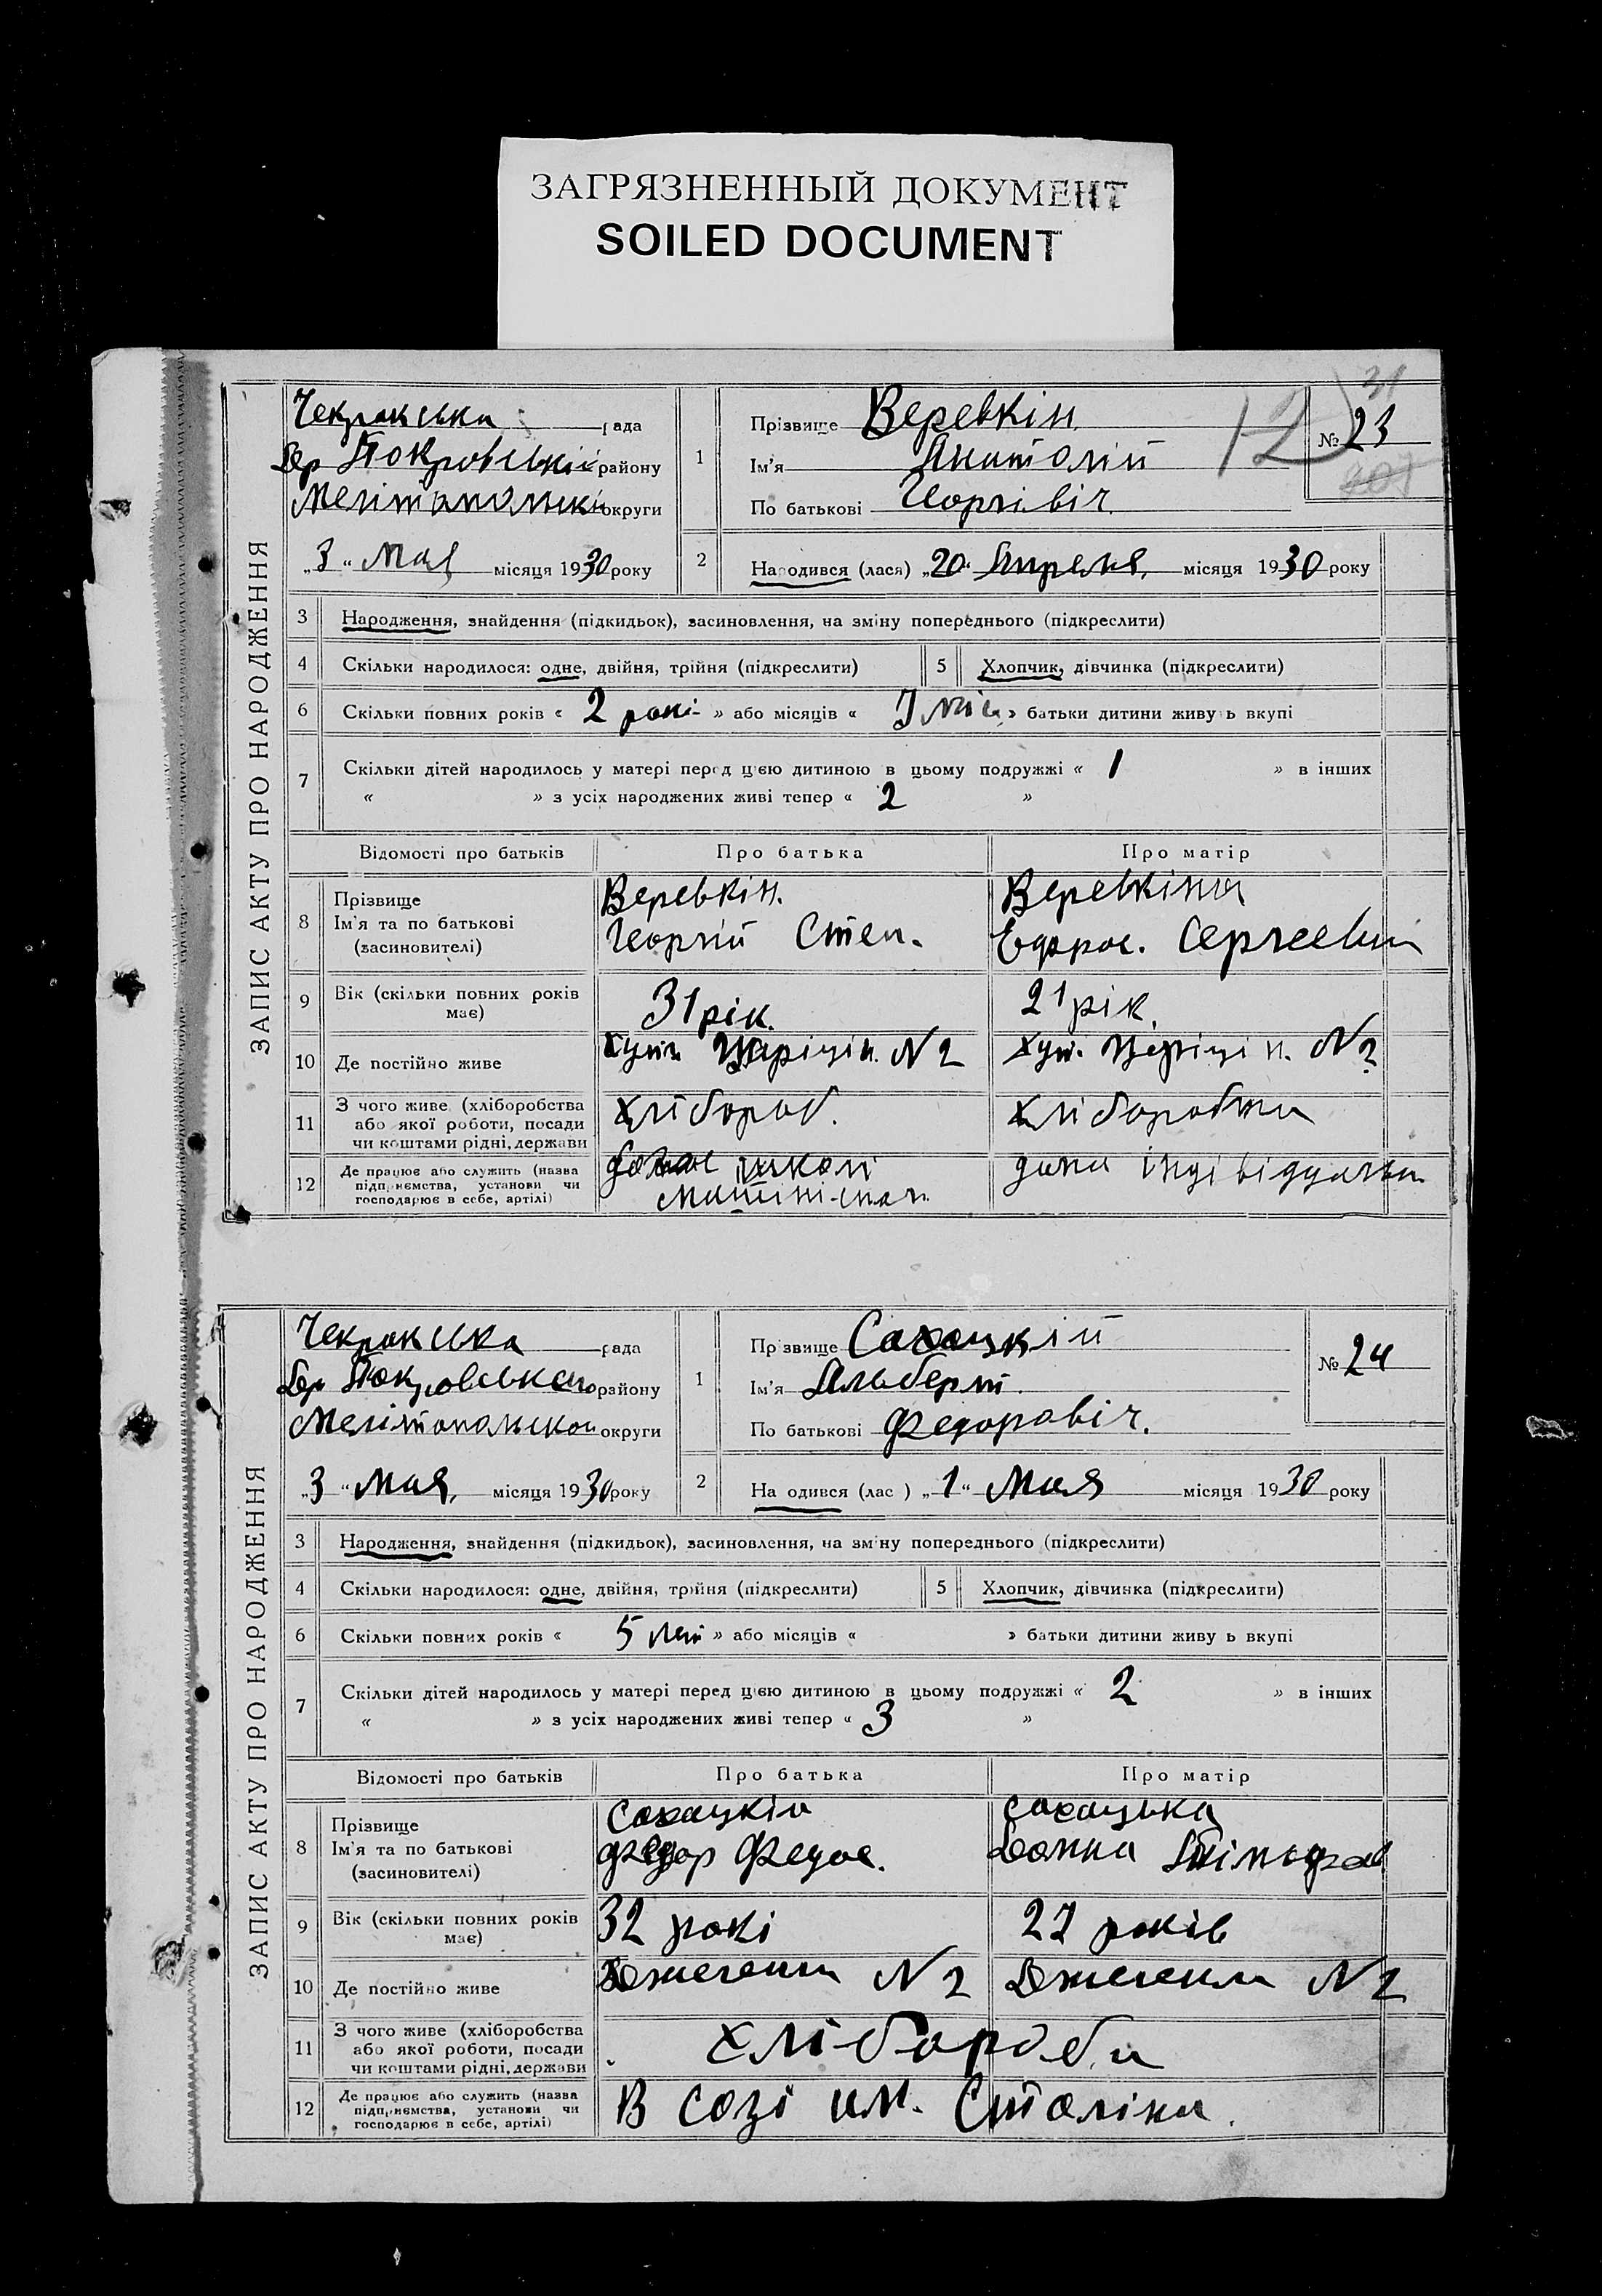 ЗАГРЯЗНЕННЫЙ ДОКУМЕНТ
SOILED DOCUMENT
ЗАПИС АКТУ ПРО НАРОДЖЕННЯ
Чекракська рада
Покровській району
Мелітопольскі округи
„3“ Мая місяця 1930 року
31
№ 23
12
1 Прізвище Веревкін
Ім'я Анатолій
По батькові Георгівіч.
2 Народився (лася) „20“ Апреля, місяця 1930 року
3 Народження, знайдення (підкидьок), засиновлення, на зміну попереднього (підкреслити)
4 Скільки народилося: одне, двійня, трійня (підкреслити)
5 Хлопчик, дівчинка (підкреслити)
6 Скільки повних років « 2 рокі » або місяців « міс » батьки дитини живу ь вкупі
7 Скільки дітей народилось у матері перед цією дитиною в цьому подружжі « 1 » в інших
« » з усіх народжених живі тепер « 2 »
Відомості про батьків Про батька Про матір
8 Прізвище
Ім'я та по батькові
(засиновителі)
Веревкін.
Георгій Степ.
Веревкіна
Ефрос. Сергеевна
9 Вік (скільки повних років має)
31 рік.
21 рік.
10 Де постійно живе
хут. Царіцін. N 2
хут. Царіцін. N 2
11 З чого живе (хліборобства
або якої роботи, посади
чи коштами рідні, держави
Хлібороб.
Хліборобка
12 Де працює або служить (назва
підприємства, установи чи
господарює в себе, артілі)
школі
дома індівідуальн
ЗАПИС АКТУ ПРО НАРОДЖЕННЯ
Чекракська рада
Покровського району
Мелітопольскои округи
„3“ Мая, місяця 1930 року
№ 24
1 Пр звище Сахацкій
Ім'я Альберт
По батькові Федоравіч.
2 На одився (лас ) „1“ Мая місяця 1930 року
3 Народження, знайдення (підкидьок), засиновлення, на зм ну попереднього (підкреслити)
4 Скільки народилося: одне, двійня, трійня (підкреслити)
5 Хлопчик, дівчинка (підкреслити)
6 Скільки повних років « 5 лет » або місяців « » батьки дитини живу ь вкупі
7 Скільки дітей народилось у матері перед цією дитиною в цьому подружжі « 2 » в інших
« » з усіх народжених живі тепер « 3 »
Відомості про батьків Про батька Про матір
8 Прізвище
Ім'я та по батькові
(засиновителі)
Сахацкій
Федор Федос.
Сахацька
Домна
9 Вік (скільки повних років має)
32 рокі
27 років
10 Де постійно живе
N 2
N 2
11 З чого живе (хліборобства
або якої роботи, посади
чи коштами рідні, держави
Хлібороби
12 Де працює або служить (назва
підприємства, установи чи
господарює в себе, артілі)
В созі им. Сталіна.